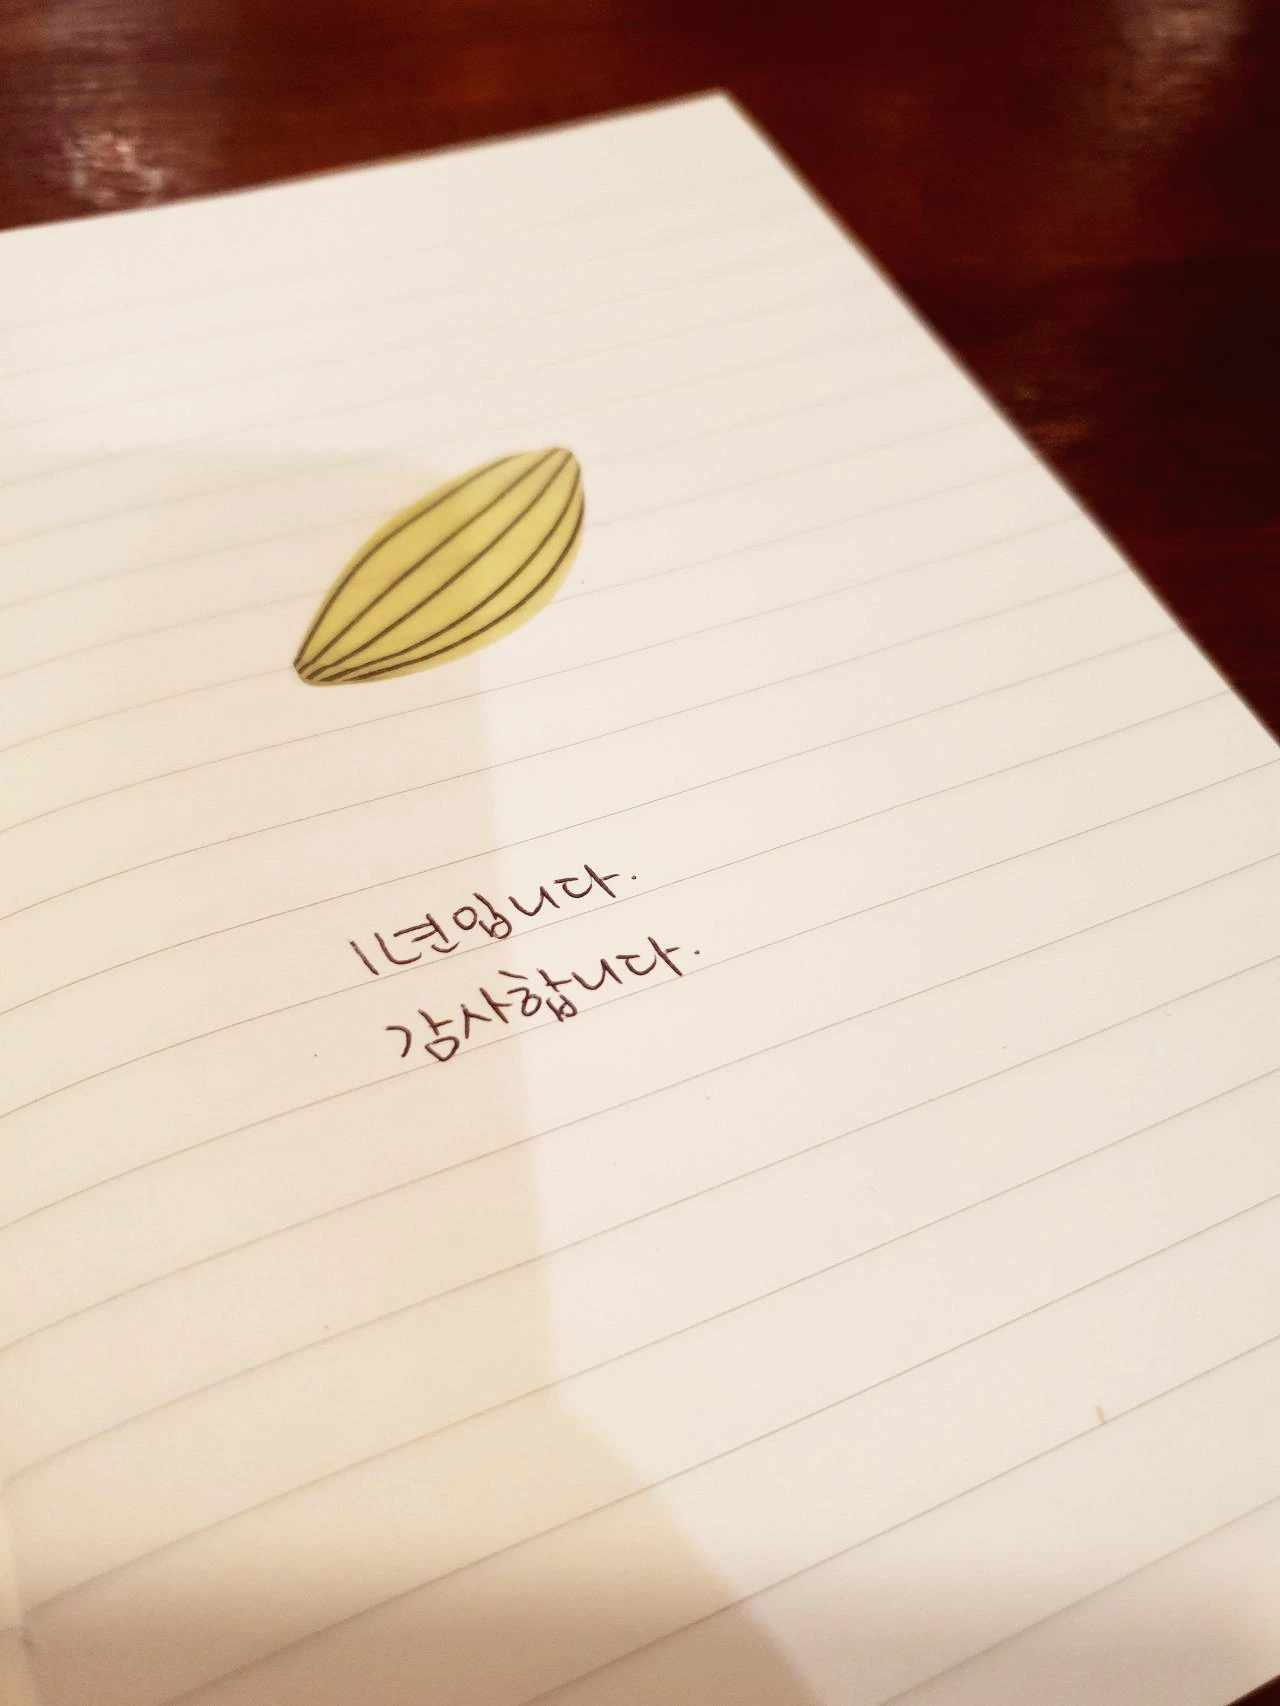 1년입니다.
감사합니다.